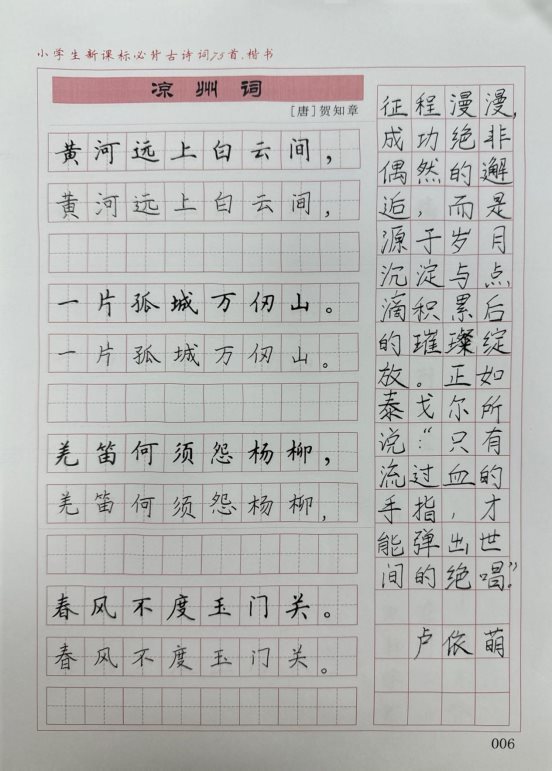 小学生新课标必背古诗词75首.楷书
凉州词
[唐]贺知章
黄河远上白云间，
黄河远上白云间，
一片孤城万仞山。
一片孤城万仞山。
羌笛何须怨杨柳，
羌笛何须怨杨柳，
春风不度玉门关。
春风不度玉门关。
征程漫漫，
成功绝非
偶然的邂
逅，而是
源于岁月
沉淀与点
滴积累后
的璀璨绽
放。正如
泰戈尔所
说：“只有
流过血的
手指，才
能弹出世
间的绝唱。”
卢依萌
006